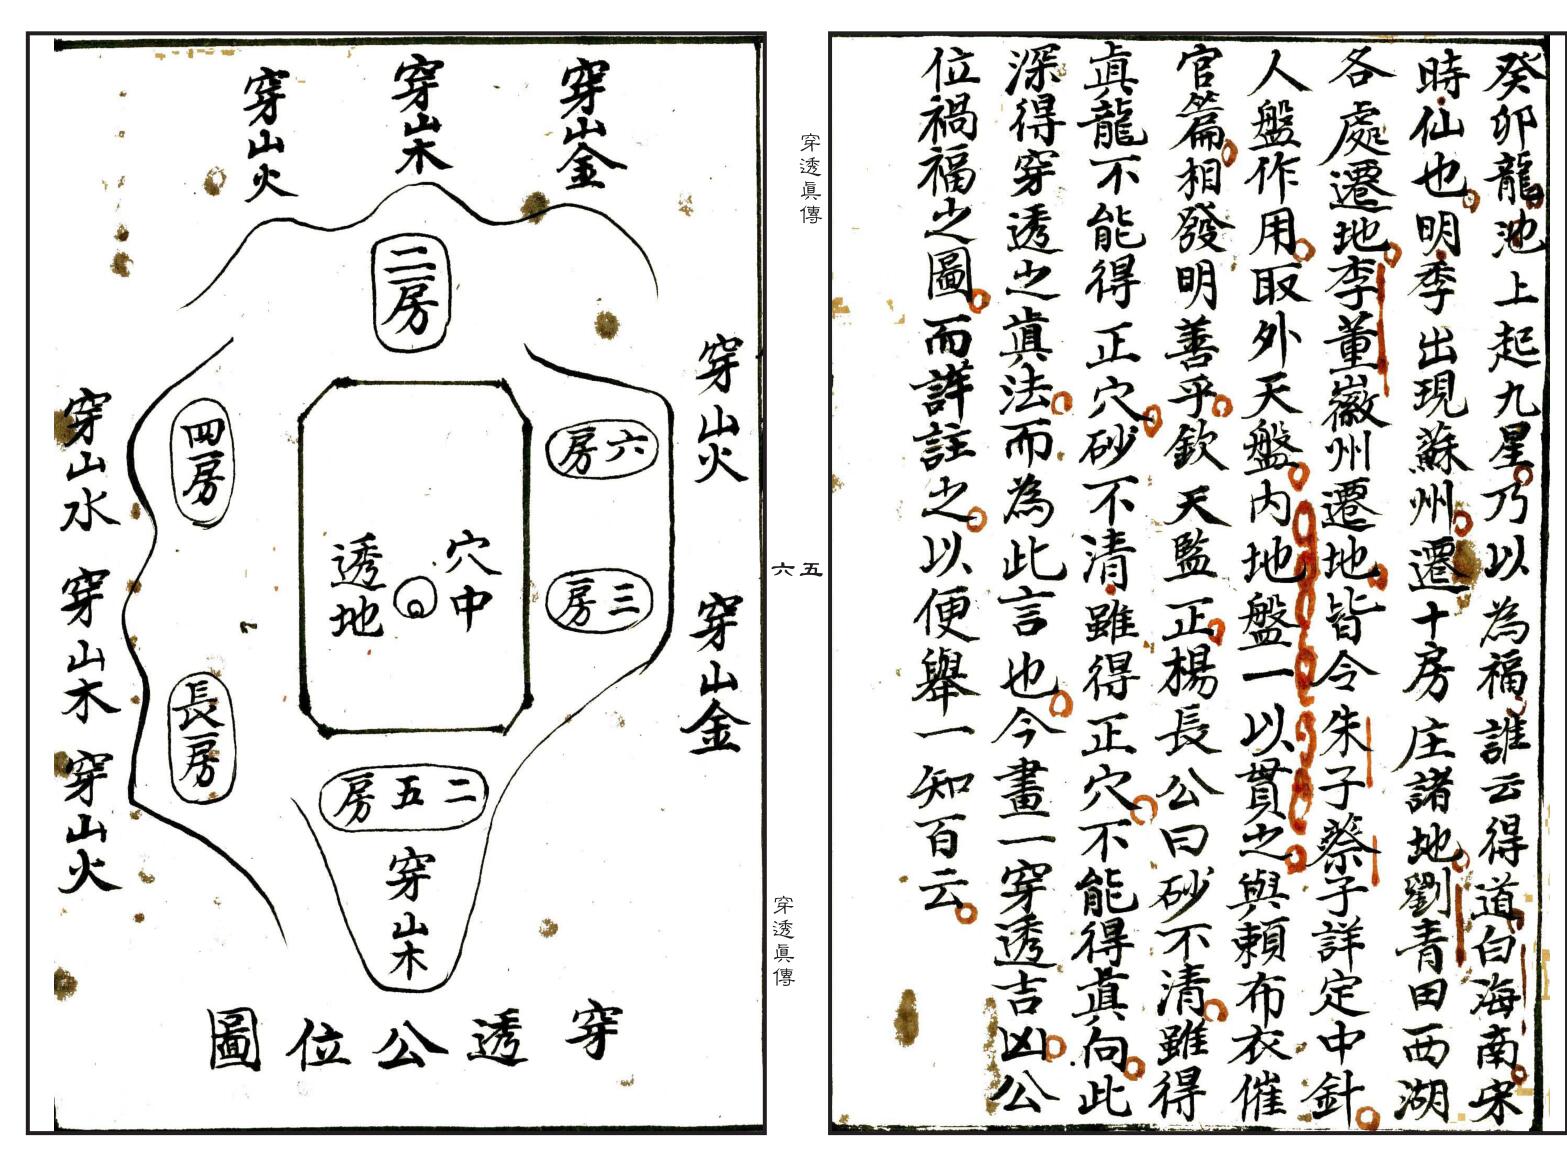 癸卯龍池上起九星乃以為福誰云得道白海南宋
時仙也明季出現蘇州遷十房庄諸地劉青田西湖
各處遷地李董徽州遷地皆令朱子蔡子詳定中針
人盤作用取外天盤內地盤一以貫之與賴布衣催
官篇相發明善乎欽天監正楊長公曰砂不清雖得
真龍不能得正穴砂不清雖得正穴不能得真向此
深得穿透之真法而為此言也今畫一穿透吉凶公
位禍福之圖而詳註之以便舉一知百云
穿透眞傳
五
六
穿透眞傳
穿山金
穿山木
穿山火
二房
穿山火
穿山金
六房
三房
穴中
透地
四房
長房
穿山水
穿山木
穿山火
二五房
穿山木
穿透公位圖